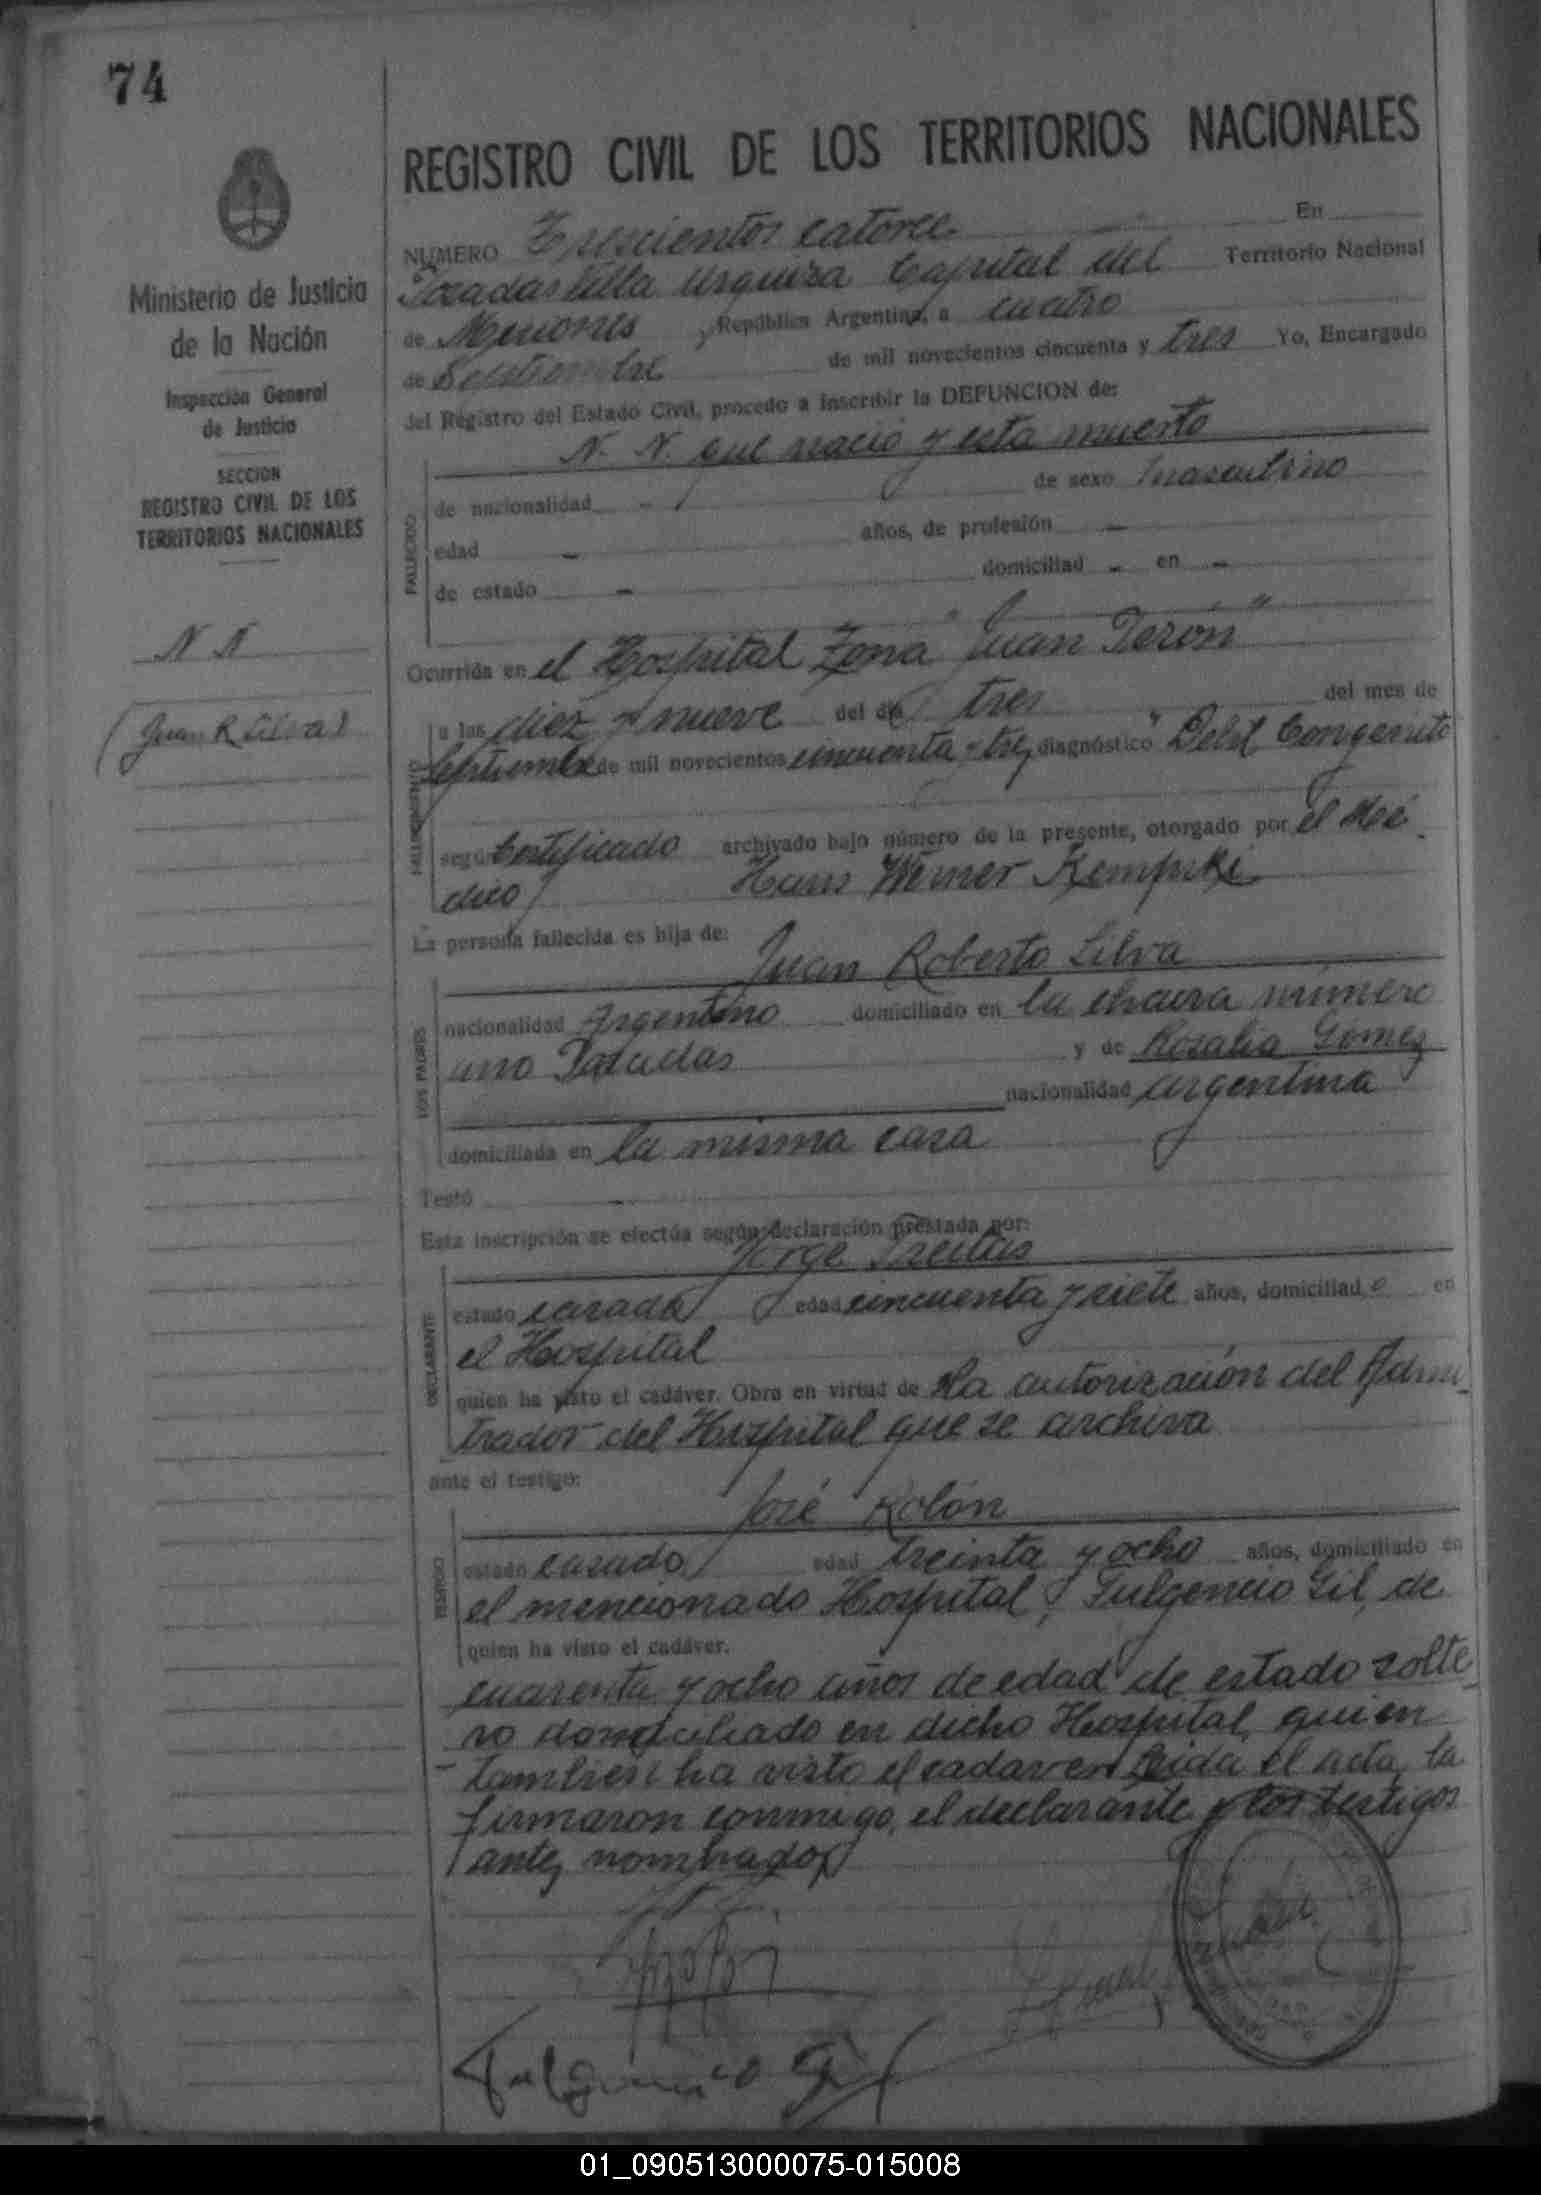 74
REGISTRO CIVIL DE LOS TERRITORIOS NACIONALES
Ministerio de Justicia
de la Nación
Inspección General
de Justicia
SECCION
REGISTRO CIVIL DE LOS
TERRITORIOS NACIONALES
N N
(Juan R Silva)
NUMERO Trescientos catorce En
Posadas Villa Urquiza Capital del Territorio Nacional
de Misiones, República Argentina, a cuatro
de Septiembre de mil novecientos cincuenta y tres Yo, Encargado
del Registro del Estado Civil, procedo a inscribir la DEFUNCION de:
N. N. que nació y esta muerto
FALLECIDO
de nacionalidad - de sexo masculino
edad - años, de profesión -
de estado - domiciliad - en -
Ocurrida en el Hospital Zona "Juan Perón"
FALLECIMIENTO
a las diez y nueve del día tres del mes de
Septiembre de mil novecientos cincuenta y tres, diagnóstico "Debil Congenito
según Certificado archivado bajo número de la presente, otorgado por el Mé-
dico Hans Werner Kempski
La persona fallecida es hija de:
Juan Roberto Silva
LOS PADRES
nacionalidad Argentino domiciliado en la chacra número
uno Posadas y de Rosalia Gomez
nacionalidad argentina
domiciliada en la misma casa
Testó -
Esta inscripción se efectúa según declaración prestada por:
Jorge
DECLARANTE
estado casado edad cincuenta y siete años, domiciliado en
el Hospital
quien ha visto el cadáver. Obra en virtud de la autorización del Admi
trador del Hospital que se archiva
ante el testigo:
José Rolón
TESTIGO
estado casado edad treinta y ocho años, domiciliado en
el mencionado Hospital, Fulgencio Gil, de
quien ha visto el cadáver.
cuarenta y ocho años de edad de estado solte
ro domiciliado en dicho Hospital, quien
tambien ha visto el cadaver. Leida el acta, la
firmaron conmigo, el declarante y los testigos
antes nombrados
Fulgencio Gil
01_090513000075-015008